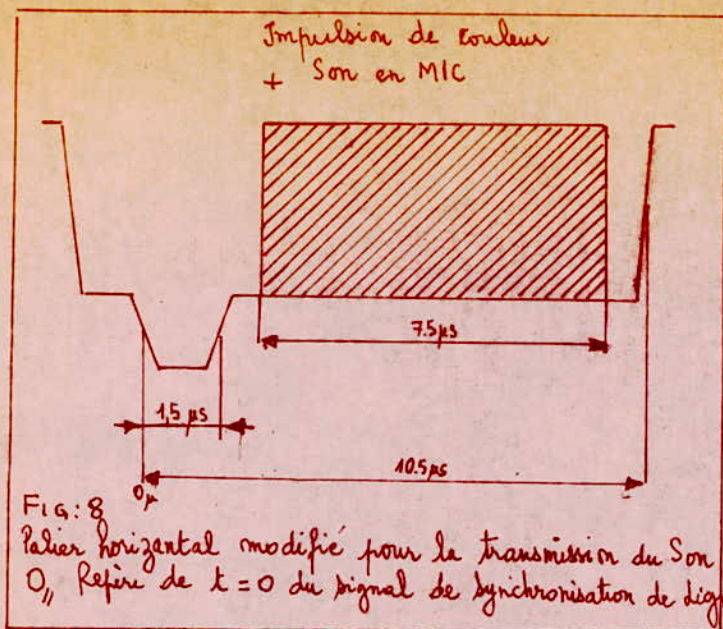 Impulsion de couleur
+ Son en MIC
7.5µs
1,5 µs
10.5µs
0µ
FIG: 8
Palier horizantal modifié pour la transmission du Son
O,, Repère de t = 0 du signal de synchronisation de